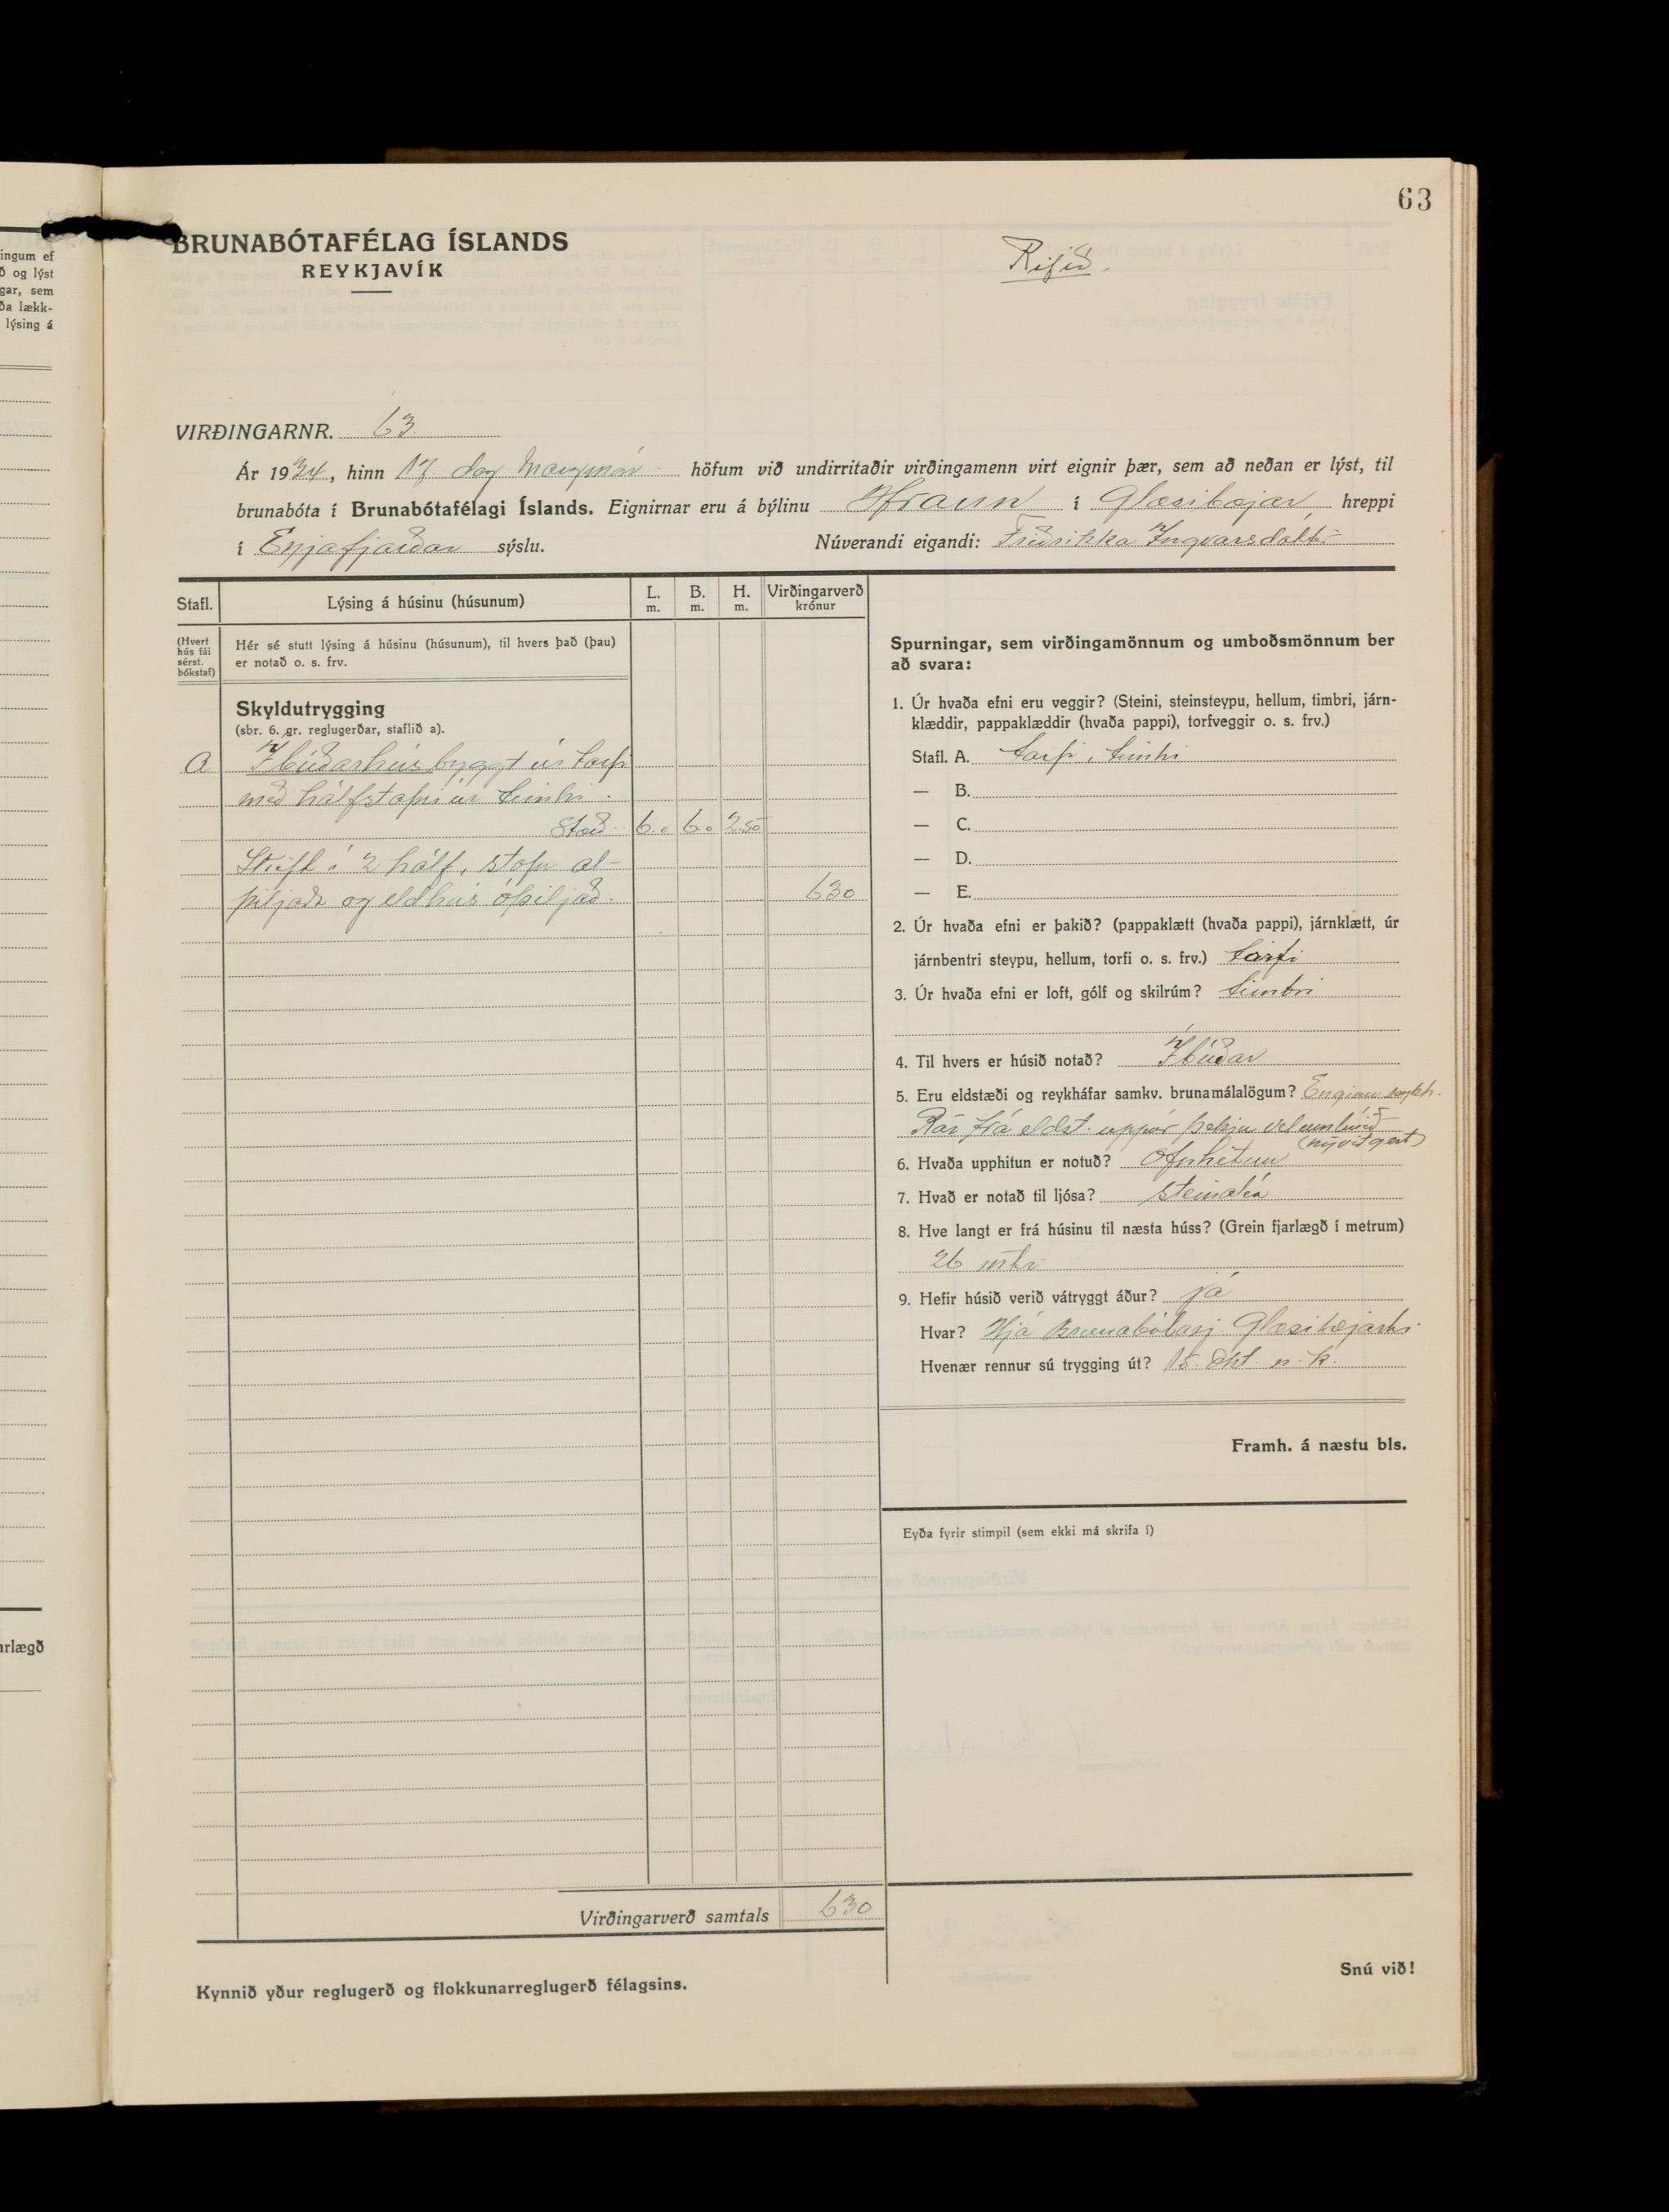 63
BRUNABÓTAFÉLAG ÍSLANDS
REYKJAVÍK
Rifið.
VIRÐINGARNR. 63
Ár 1934, hinn 17. dag höfum við undirritaðir virðingamenn virt eignir þær, sem að neðan er lýst, til
brunabóta í Brunabótafélagi Íslands. Eignirnar eru á býlinu Hraun í Glæsibæjar hreppi
í Eyjafjarðar sýslu. Núverandi eigandi: Friðrikka Ingvarsdóttir
Stafl. Lýsing á húsinu (húsunum) L. m. B. m. H. m. Virðingarverð krónur
(Hvert hús fái sérst. bókstaf)
Hér sé stutt lýsing á húsinu (húsunum), til hvers það (þau)
er notað o. s. frv.
Skyldutrygging
(sbr. 6. gr. reglugerðar, staflið a).
a Íbúðarhús byggt úr torfi
með hálfstafni úr timbri.
Stærð 6.0 6.0 2.50
í 2 hálf, stofu al-
þiljaða og eldhús óþiljað. 630
Virðingarverð samtals 630
Kynnið yður reglugerð og flokkunarreglugerð félagsins.
Spurningar, sem virðingamönnum og umboðsmönnum ber
að svara:
1. Úr hvaða efni eru veggir? (Steini, steinsteypu, hellum, timbri, járn-
klæddir, pappaklæddir (hvaða pappi), torfveggir o. s. frv.)
Stafl. A. torfi, timbri
— B.
— C.
— D.
— E.
2. Úr hvaða efni er þakið? (pappaklætt (hvaða pappi), járnklætt, úr
járnbentri steypu, hellum, torfi o. s. frv.) torfi
3. Úr hvaða efni er loft, gólf og skilrúm? timbri
4. Til hvers er húsið notað? Íbúðar
5. Eru eldstæði og reykháfar samkv. brunamálalögum? Enginn reykh.
Rör frá eldst. uppúr þekju vel umbúið
(nývirt gert)
6. Hvaða upphitun er notuð? Ofnhitun
7. Hvað er notað til ljósa? steinolía
8. Hve langt er frá húsinu til næsta húss? (Grein fjarlægð í metrum)
26 mtr
9. Hefir húsið verið vátryggt áður? já
Hvar? Hjá Brunabótasj. Glæsibæjarhr.
Hvenær rennur sú trygging út? 15. okt. n. k.
Framh. á næstu bls.
Eyða fyrir stimpil (sem ekki má skrifa í)
Snú við!
ingum ef
ð og lýst
gar, sem
ða lækk-
lýsing á
arlægð